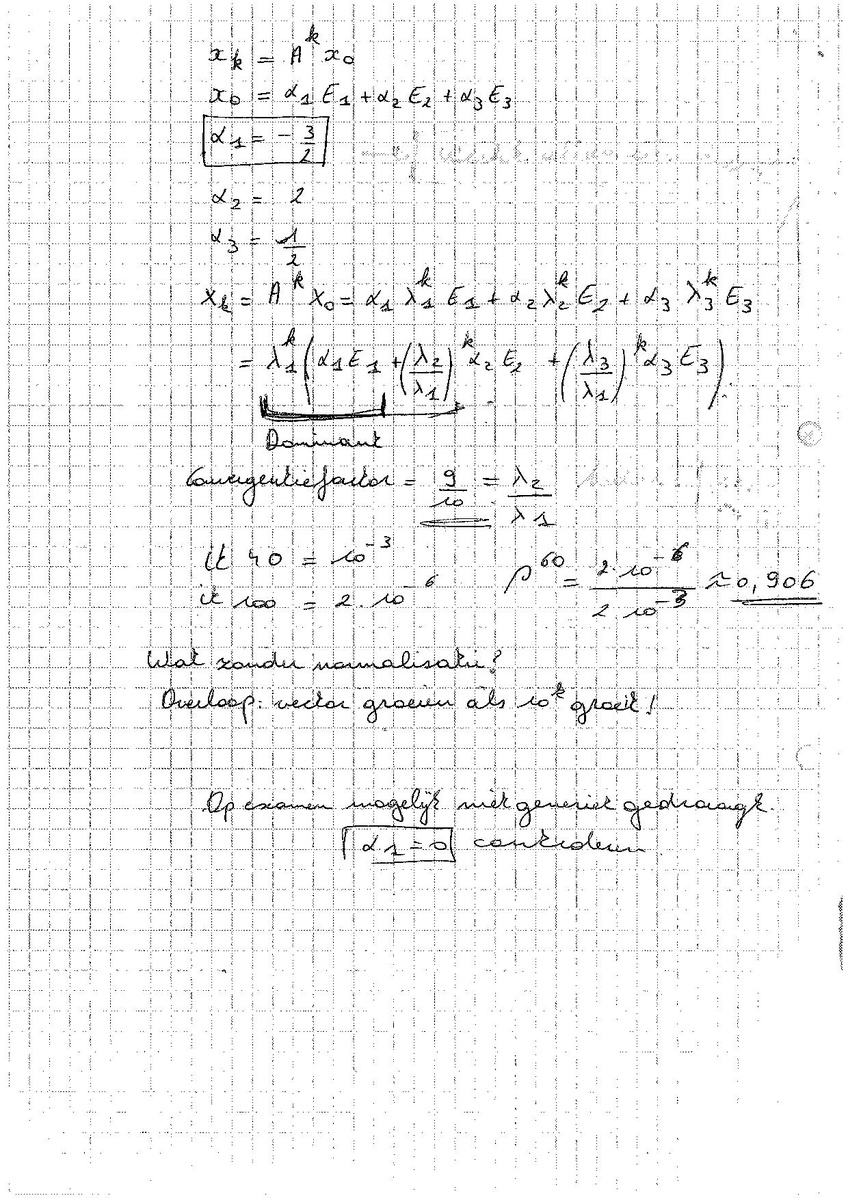 x_k = A^k x_0
x_0 = α_1 E_1 + α_2 E_2 + α_3 E_3
α_1 = - 3/2
α_2 = 2
α_3 = 1/2
x_k = A^k x_0 = α_1 λ_1^k E_1 + α_2 λ_2^k E_2 + α_3 λ_3^k E_3
= λ_1^k (α_1 E_1 + (λ_2/λ_1)^k α_2 E_2 + (λ_3/λ_1)^k α_3 E_3)
Dominant
Convergentiefactor = 9/10 = λ_2/λ_1
it 40 = 10^-3
it 100 = 2·10^-6 ρ^60 = 2·10^-6 / 2 10^-3 ≈ 0,906
Wat zonder normalisatie?
Overloop: vector groeien als 10^k groeit!
Op examen mogelijk niet generiek gedraagt.
α_1 = 0 controleren